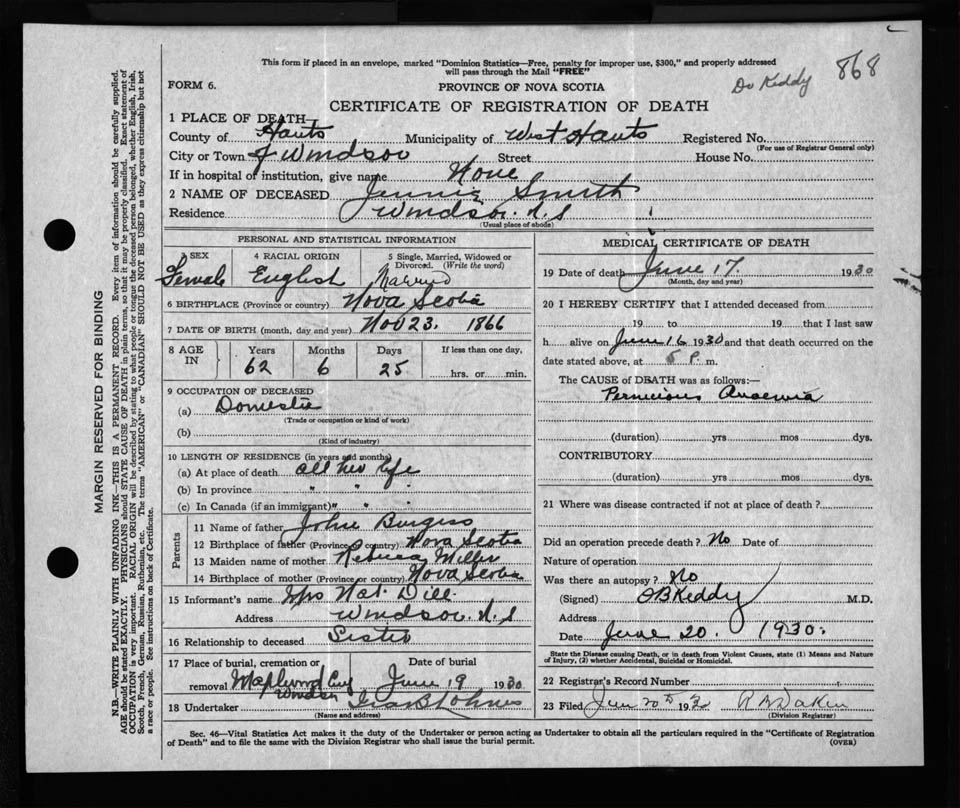 This form if placed in an envelope, marked "Dominion Statistics—Free, penalty for improper use, $300," and properly addressed
will pass through the Mail "FREE"
Dr Keddy 868
FORM 6. PROVINCE OF NOVA SCOTIA
CERTIFICATE OF REGISTRATION OF DEATH
1 PLACE OF DEATH—
County of Hants Municipality of West Hants Registered No.
(For use of Registrar General only)
City or Town of Windsor Street House No.
If in hospital of institution, give name None
2 NAME OF DECEASED Jennie Smith
Residence Windsor. N.S
(Usual place of abode)
PERSONAL AND STATISTICAL INFORMATION
3 SEX 4 RACIAL ORIGIN 5 Single, Married, Widowed or
Divorced. (Write the word)
Female English Married
6 BIRTHPLACE (Province or country) Nova Scotia
7 DATE OF BIRTH (month, day and year) Nov 23. 1866
8 AGE IN Years Months Days If less than one day,
62 6 25 hrs. or min.
9 OCCUPATION OF DECEASED
(a) Domestic
(Trade or occupation or kind of work)
(b)
(Kind of industry)
10 LENGTH OF RESIDENCE (in years and months)
(a) At place of death all her life
(b) In province " " "
(c) In Canada (if an immigrant) " " "
Parents
11 Name of father John Burgess
12 Birthplace of father (Province or country) Nova Scotia
13 Maiden name of mother Rebecca Miller
14 Birthplace of mother (Province or country) Nova Scotia
15 Informant's name Mrs Nat. Dill
Address Windsor. N.S
16 Relationship to deceased Sister
17 Place of burial, cremation or Date of burial
removal Maplewood Cem June 19 1930
Windsor
18 Undertaker
(Name and address)
MEDICAL CERTIFICATE OF DEATH
19 Date of death June 17. 1930
(Month, day and year)
20 I HEREBY CERTIFY that I attended deceased from
19 to 19 that I last saw
h alive on June 16 1930 and that death occurred on the
date stated above, at 5 P. m.
The CAUSE of DEATH was as follows:—
Pernicious Anaemia
(duration) yrs mos dys.
CONTRIBUTORY
(duration) yrs mos dys.
21 Where was disease contracted if not at place of death?
Did an operation precede death? No Date of
Nature of operation
Was there an autopsy? No
(Signed) OB Keddy M.D.
Address
Date June 20. 1930.
State the Disease causing Death, or in death from Violent Causes, state (1) Means and Nature
of Injury, (2) whether Accidental, Suicidal or Homicidal.
22 Registrar's Record Number
23 Filed June 20th 1930
(Division Registrar)
Sec. 46—Vital Statistics Act makes it the duty of the Undertaker or person acting as Undertaker to obtain all the particulars required in the "Certificate of Registration
of Death" and to file the same with the Division Registrar who shall issue the burial permit. (OVER)
MARGIN RESERVED FOR BINDING
N.B.—WRITE PLAINLY WITH UNFADING INK—THIS IS A PERMANENT RECORD. Every item of information should be carefully supplied.
AGE should be stated EXACTLY. PHYSICIANS should STATE CAUSE OF DEATH in plain terms, so that it may be properly classified. Exact statement of
OCCUPATION is very important. RACIAL ORIGIN will be described by stating to what people or tongue the deceased person belonged, whether English, Irish,
Scotch, French, German, Russian, Ruthenian, etc. The terms "AMERICAN" or "CANADIAN" SHOULD NOT BE USED as they express citizenship but not
a race or people. See instructions on back of Certificate.